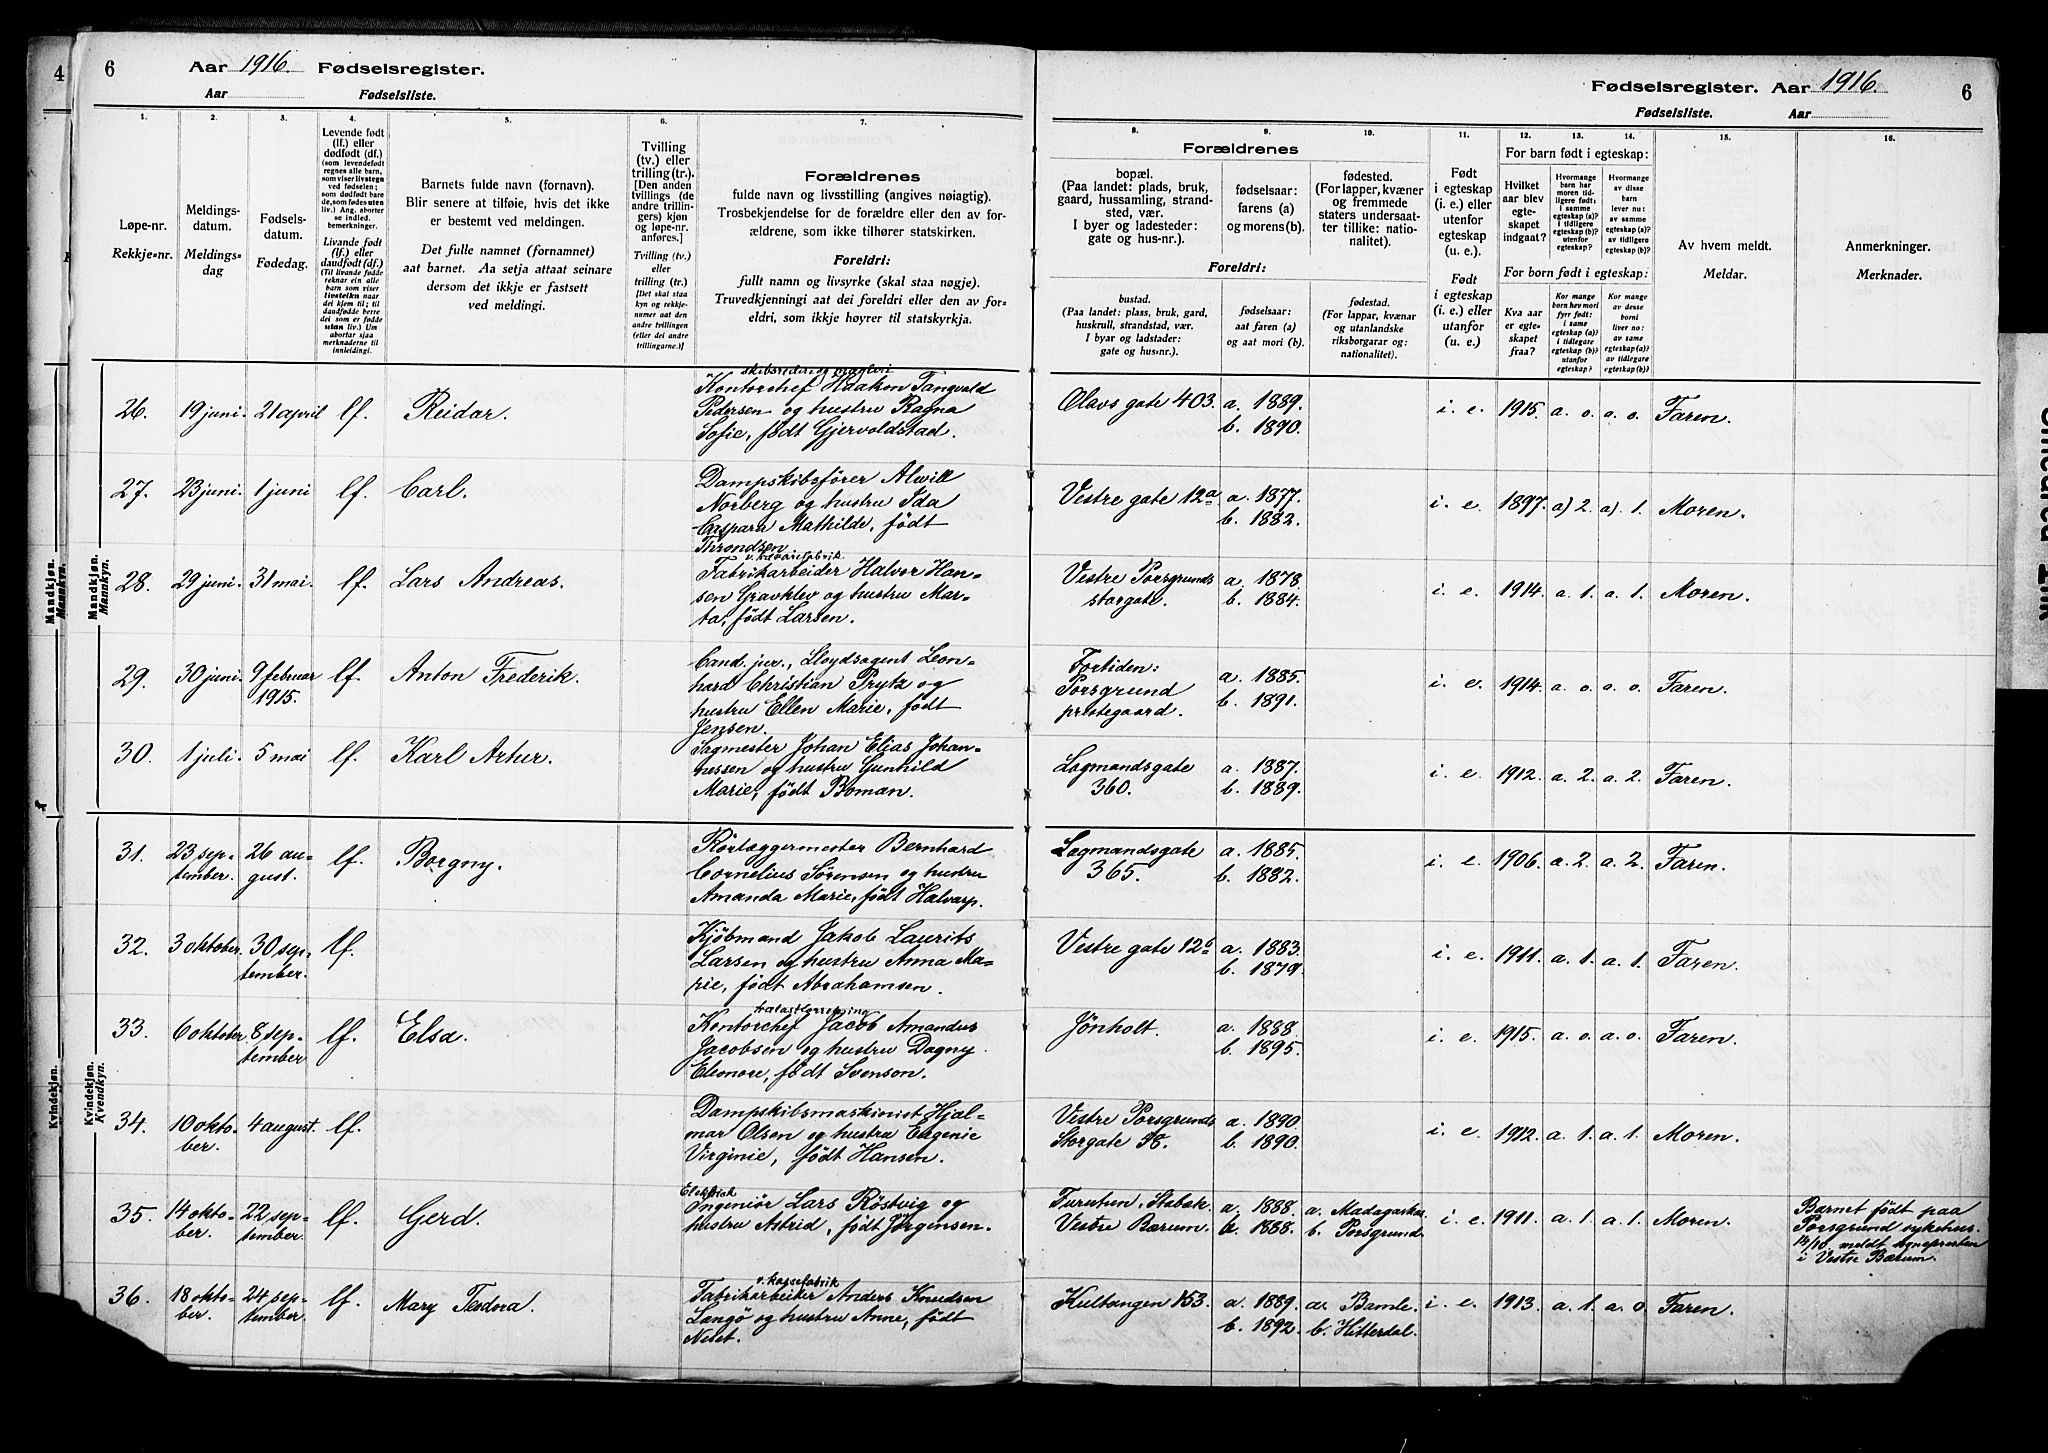 4
6
Aar 1916. Fødselsregister.
Aar Fødselsliste.
1.
2.
3.
4.
5.
6.
7.
Løpe-nr.
Rekkje-nr.
Meldings-
datum.
Meldings-
dag
Fødsels-
datum.
Fødedag.
Levende født
(lf.) eller
dødfødt (df.)
(som levendefødt
regnes alle barn,
som viser livstegn
ved fødselen;
som dødfødt bare
de, som fødes uten
liv.) Ang. aborter
se indled.
bemerkninger.
Livande født
(lf.) eller
daudfødt (df.)
(Til livande fødde
reknar ein alle
barn som viser
livsteikn naar
dei kjem til; til
daudfødde berre
dei som er fødde
utan liv.) Um
abortar sjaa
merknaderne til
innleidingi.
Barnets fulde navn (fornavn).
Blir senere at tilføie, hvis det ikke
er bestemt ved meldingen.
Det fulle namnet (fornamnet)
aat barnet. Aa setja attaat seinare
dersom det ikkje er fastsett
ved meldingi.
Tvilling
(tv.) eller
trilling (tr.)
[Den anden
tvillings (de
andre trillin-
gers) kjøn
og løpe-nr.
anføres.]
Tvilling (tv.)
eller
trilling (tr.)
[Det skal staa
kyn og rekkje-
numer aat den
andre tvillingen
(eller dei andre
trillingarne.)]
Forældrenes
fulde navn og livsstilling (angives nøiagtig).
Trosbekjendelse for de forældre eller den av for-
ældrene, som ikke tilhører statskirken.
Foreldri:
fullt namn og livsyrke (skal staa nøgje).
Truvedkjenningi aat dei foreldri eller den av for-
eldri, som ikkje høyrer til statskyrkja.
Mandkjøn.
Mannkyn.
Mandkjøn.
Mannkyn.
26. 19 juni. 21 april lf. Reidar.
Kontorchef Haakon Tangvald
Pedersen og hustru Ragna
Sofie, født Gjervoldstad.
27. 23 juni. 1 juni lf. Carl.
Dampskibsfører Alwill
Norberg og hustru Ida
Caspara Mathilde, født
Throndsen
28. 29 juni. 31 mai. lf. Lars Andreas.
Fabrikarbeider Halvor Han-
sen Gravklev og hustru Mar-
ta, født Larsen.
29. 30 juni. 9 februar 1915. lf. Anton Frederik.
Cand. jur., Lloydsagent Leon-
hard Christian Prytz og
hustru Ellen Marie, født
Jensen.
30. 1 juli. 5 mai lf. Karl Artur.
Sagmester Johan Elias Johan-
nessen og hustru Gunhild
Marie, født Boman.
Kvindekjøn.
Kvendkyn.
Kvindekjøn.
Kvendkyn.
31. 23 sep-
tember. 26 au-
gust. lf. Borgny.
Rørlæggermester Bernhard
Cornelius Sørensen og hustru
Amanda Marie, født Halvarp.
32. 3 oktober. 30 sep-
tember. lf.
Kjøbmand Jakob Laurits
Larsen og hustru Anna Ma-
rie, født Abrahamsen.
33. 6 oktober 8 sep-
tember lf. Elsa.
Kontorchef Jacob Amandus
Jacobsen og hustru Dagny
Eleonore, født Svenson.
34. 10 okto-
ber. 4 august. lf.
Dampskibsmaskinist Hjal-
mar Olsen og hustru Eugenie
Virginie, født Hansen.
35. 14 okto-
ber. 22 sep-
tember. lf. Gerd.
Elektrisk
Ingeniør Lars Röstvig og
hustru Astrid, født Jörgensen.
36. 18 okto-
ber. 24 sep-
tember. lf. Mary Teodora.
Fabrikarbeider Anders Knudsen
Langø og hustru Anne, født
Neset.
Fødselsregister. Aar 1916. 6
Fødselsliste. Aar
8.
9.
10.
11.
12.
13.
14.
15.
16.
Forældrenes
bopæl.
(Paa landet: plads, bruk,
gaard, hussamling, strand-
sted, vær.
I byer og ladesteder:
gate og hus-nr.).
fødselsaar:
farens (a)
og morens (b).
fødested.
(For lapper, kvæner
og fremmede
staters undersaat-
ter tillike: natio-
nalitet).
Foreldri:
bustad.
(Paa landet: plass, bruk, gard,
huskrull, strandstad, vær.
I byar og ladstader:
gate og hus-nr.).
fødselsaar:
aat faren (a)
og aat mori (b).
fødestad.
(For lappar, kvænar
og utanlandske
riksborgarar og:
nationalitet).
Født
i egteskap
(i. e.) eller
utenfor
egteskap
(u. e.).
Født
i egteskap
(i. e.) eller
utanfor
(u. e.)
For barn født i egteskap:
Hvilket
aar blev
egte-
skapet
indgaat?
Hvormange
barn har
moren tid-
ligere født:
i samme
egteskap (a)?
i tidligere
egteskap (b)?
utenfor
egteskap?
Hvormange
av disse
barn
lever nu:
av samme
egteskap (a)?
av tidligere
egteskap (b)?
For born født i egteskap:
Kva aar
er egte-
skapet
fraa?
Kor mange
born hev mori
fyrr født:
i same
egteskap (a)?
i tidlegare
egteskap (b)?
utanfor
egteskap?
Kor mange
av desse
borni
liver no:
av same
egteskap (a)?
av tidlegare
egteskap (b)?
Av hvem meldt.
Meldar.
Anmerkninger.
Merknader.
Olavs gate 403. a. 1889. i. e. 1915. a. o. a. o. Faren.
b. 1890.
Vestre gate 12a a. 1877. i. e. 1897. a) 2. a). 1. Moren.
b. 1882.
Vestre Porsgrunds a. 1878. i. e. 1914. a. 1. a. 1. Moren.
storgate. b. 1884.
Fortiden: a. 1885. i. e. 1914. a. o. a. o. Faren.
Porsgrund
prestegaard. b. 1891.
Lagmandsgate a. 1887. i. e. 1912. a. 2. a. 2. Faren.
360. b. 1889.
Lagmandsgate a. 1885. i. e. 1906. a. 2. a. 2. Faren.
365. b. 1882.
Vestre gate 12b a. 1883. i. e. 1911. a. 1. a. 1. Faren.
b. 1879.
Jønholt. a. 1888. i. e. 1915. a. o. a. o. Faren.
b. 1895.
Vestre Porsgrunds a. 1890. i. e. 1912. a. 1. a. 1. Moren.
Storgate b. 1890.
Stabæk a. 1888. a. Madagaskar i. e. 1911. a. 1. a. 1. Moren.
Vestre Bærum. b. 1888. b. Porsgrund.
Barnet født paa
Porsgrund sykehus.
14/10 meldt sognepresten
i Vestre Bærum.
Kultangen 153. a. 1889. a. Bamle. i. e. 1913. a. 1. a. o. Faren.
b. 1892. b. Hitterdal.